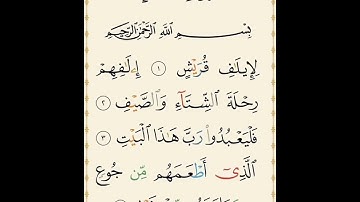 بِسْمِ ٱللَّهِ ٱلرَّحْمَٰنِ ٱلرَّحِيمِ
لِإِيلَٰفِ قُرَيْشٍ ١ إِۦلَٰفِهِمْ
رِحْلَةَ ٱلشِّتَآءِ وَٱلصَّيْفِ ٢
فَلْيَعْبُدُوا۟ رَبَّ هَٰذَا ٱلْبَيْتِ ٣
ٱلَّذِىٓ أَطْعَمَهُم مِّن جُوعٍ